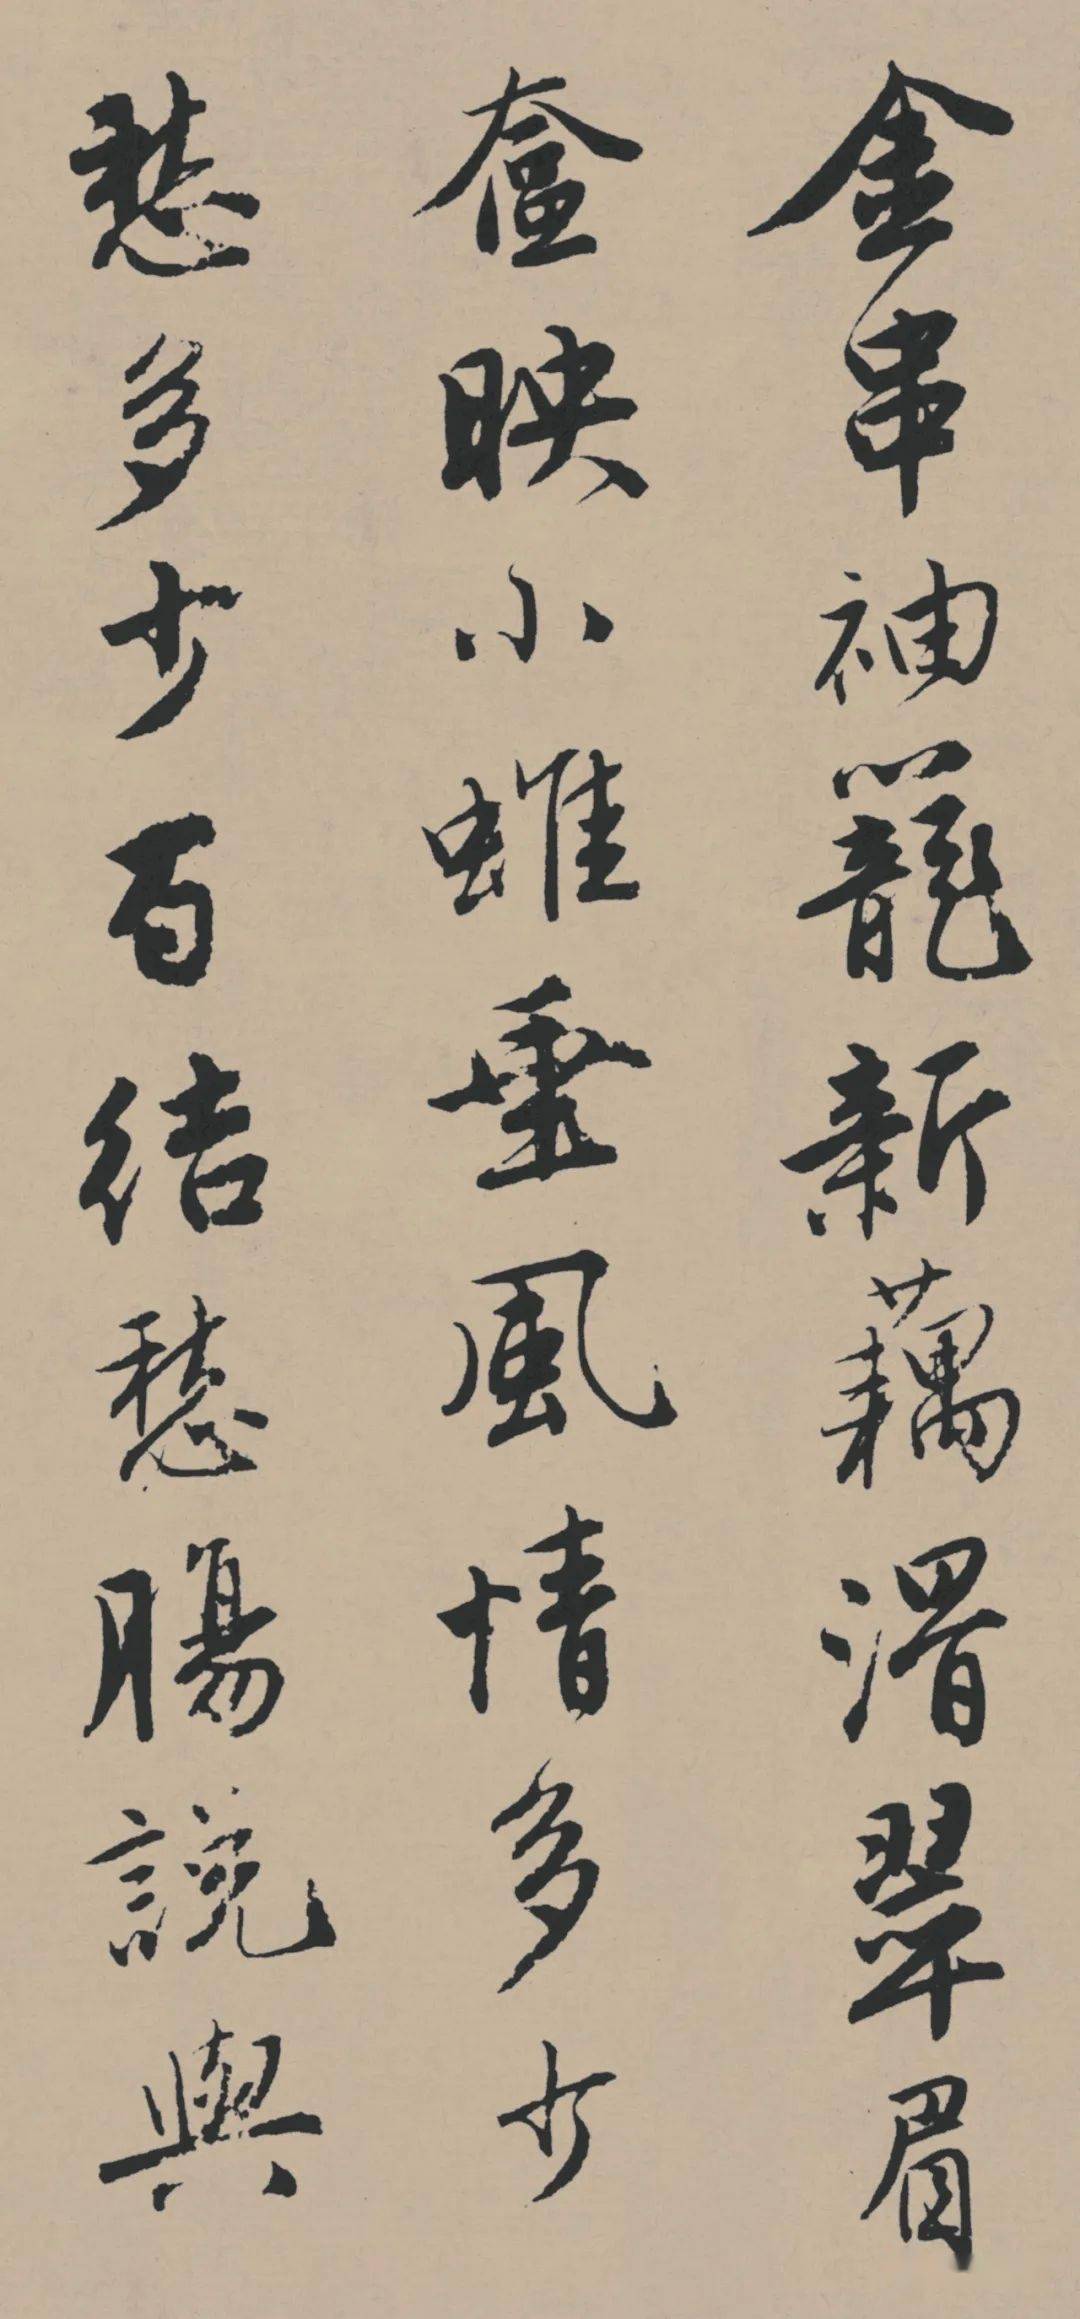 金串袖籠新藕滑翠眉
奩映小蛾垂風情多少
愁多少百結愁腸說與